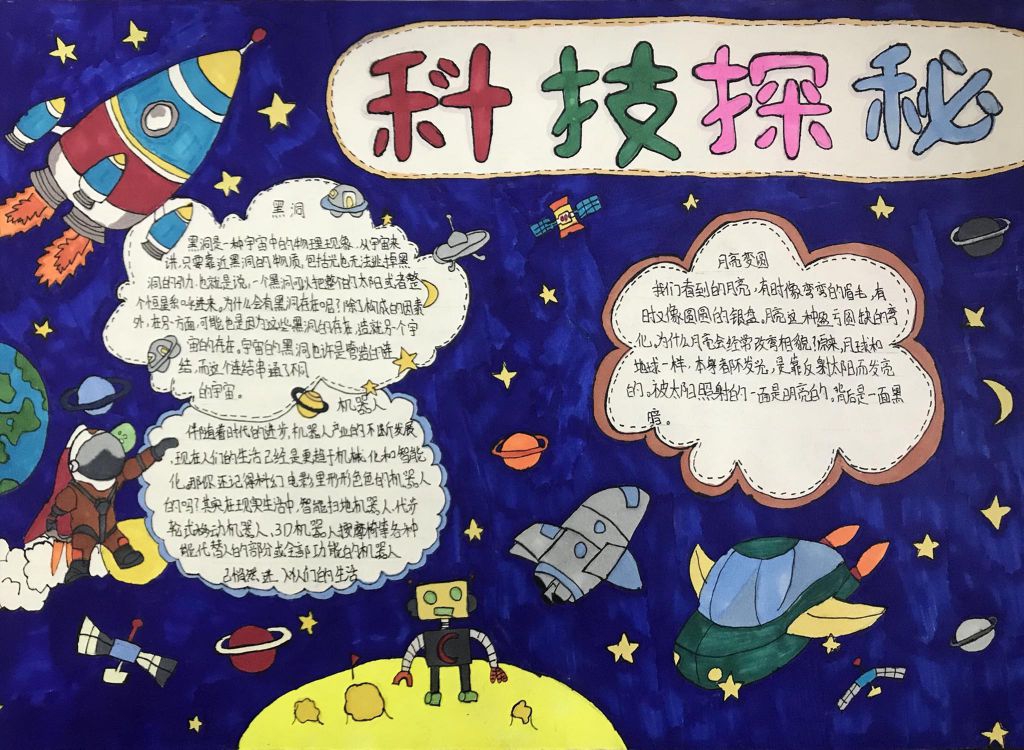 科技探秘
黑洞
黑洞是一种宇宙中的物理现象。从宇宙来
讲,只要靠近黑洞的物质,包括光也无法逃掉黑
洞的引力,也就是说,一个黑洞可以把整个的太阳或者整
个恒星系吸进来。为什么会有黑洞存在呢?除了构成的因素
外,在另一方面,可能也是因为这些黑洞的存在,造就另个宇
宙的存在。宇宙的黑洞也许是管道的连
结,而这个连结串通了不同
的宇宙。
机器人
伴随着时代的进步,机器人产业的不断发展
,现在人们的生活已经是更趋于机械化和智能
化。那你还记得科幻电影里形形色色的机器人
的吗?其实在现实生活中,智能扫地机器人、代步
轮式移动机器人、3D机器人按摩椅等各种
能代替人的部分或全部功能的机器人
已悄然进入人们的生活
月亮变圆
我们看到的月亮,有时像弯弯的眉毛,有
时又像圆圆的银盘。月亮这种盈亏圆缺的变
化,为什么月亮会经常改变相貌?原来,月球和
地球一样,本身都不发光,是靠反射太阳而发亮
的。被太阳照射的一面是明亮的。背后是一面黑
暗。